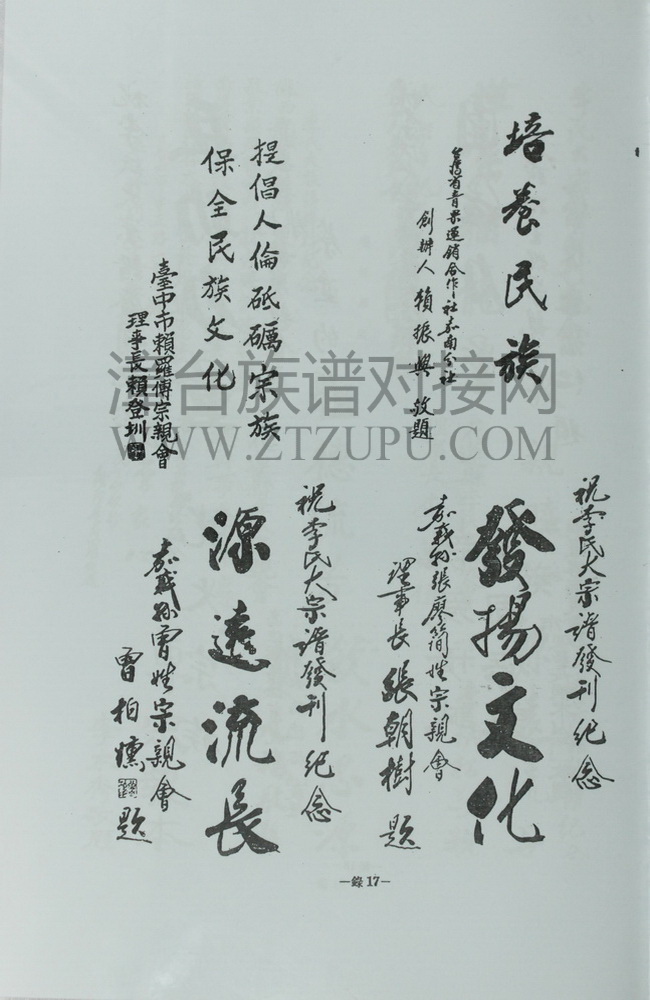 培養民族
台灣省青果運銷合作社嘉南分社
創辦人 賴振興 敬題
提倡人倫砥礪宗族
保全民族文化
臺中市賴羅傅宗親會
理事長賴登圳
漳台族谱对接网
WWW.ZTZUPU.COM
祝李氏大宗譜發刊紀念
發揚文化
嘉義縣張廖簡姓宗親會
理事長 張朝樹 題
祝李氏大宗譜發刊紀念
源遠流長
嘉義縣曾姓宗親會
曾柏 題
—錄17—